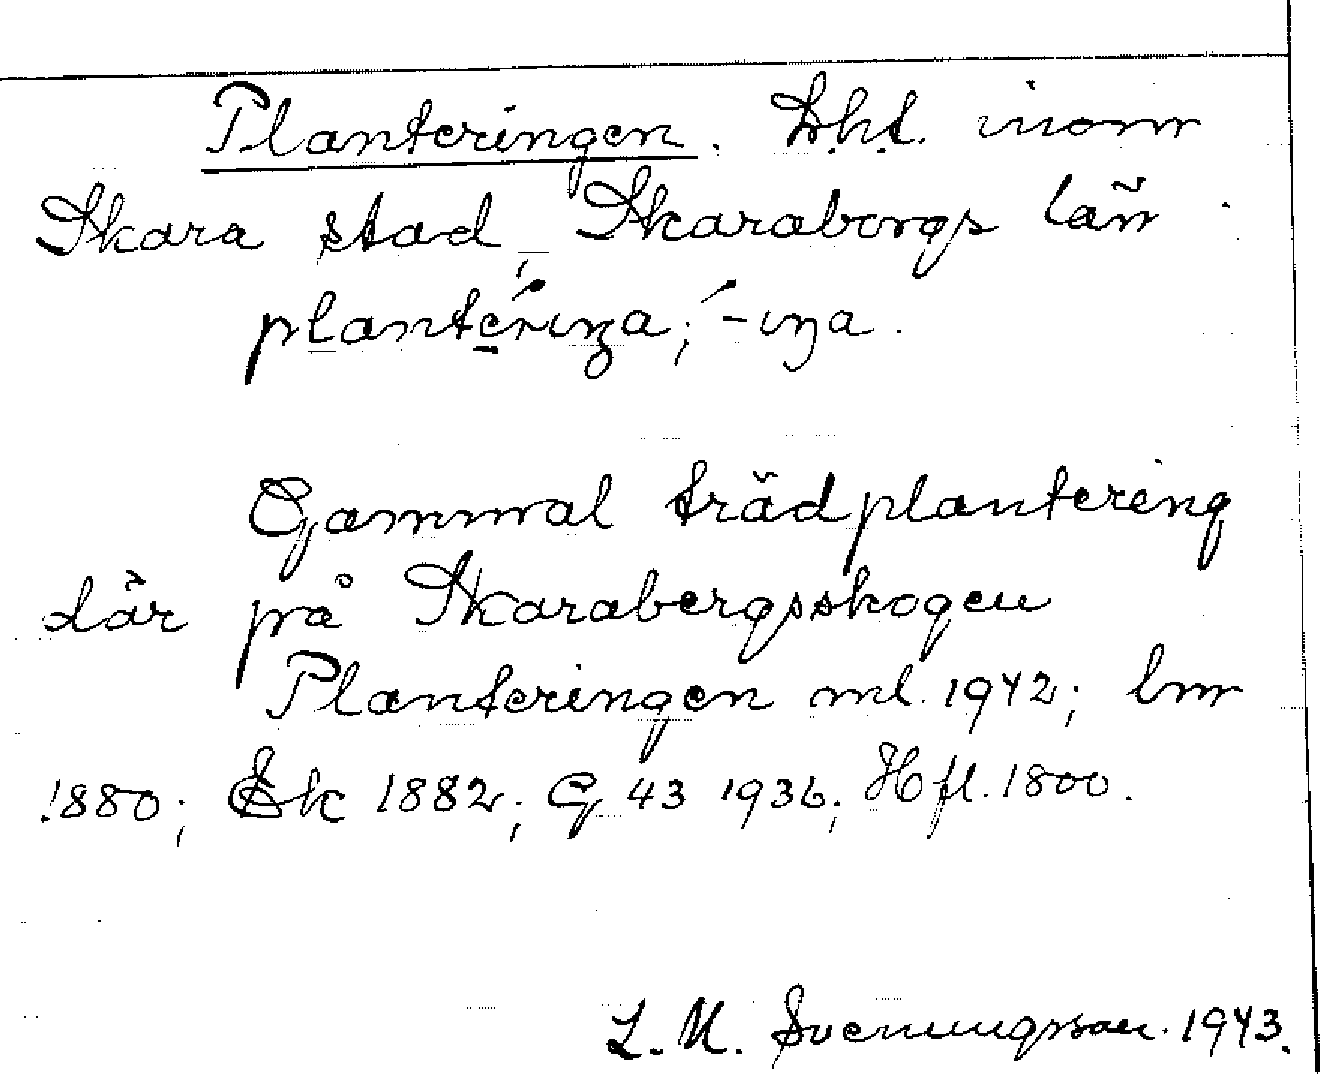 Planteringen. Lht. inom
Skara stad, Skaraborgs län.
plantérıŋa; ´-ıŋa.
Gammal trädplantering
där på Skarabergsskogen
Planteringen ml. 1942; bm
1880; Ek 1882; G 43 1936; Hfl. 1800.
L. M. Svenungsson. 1943.